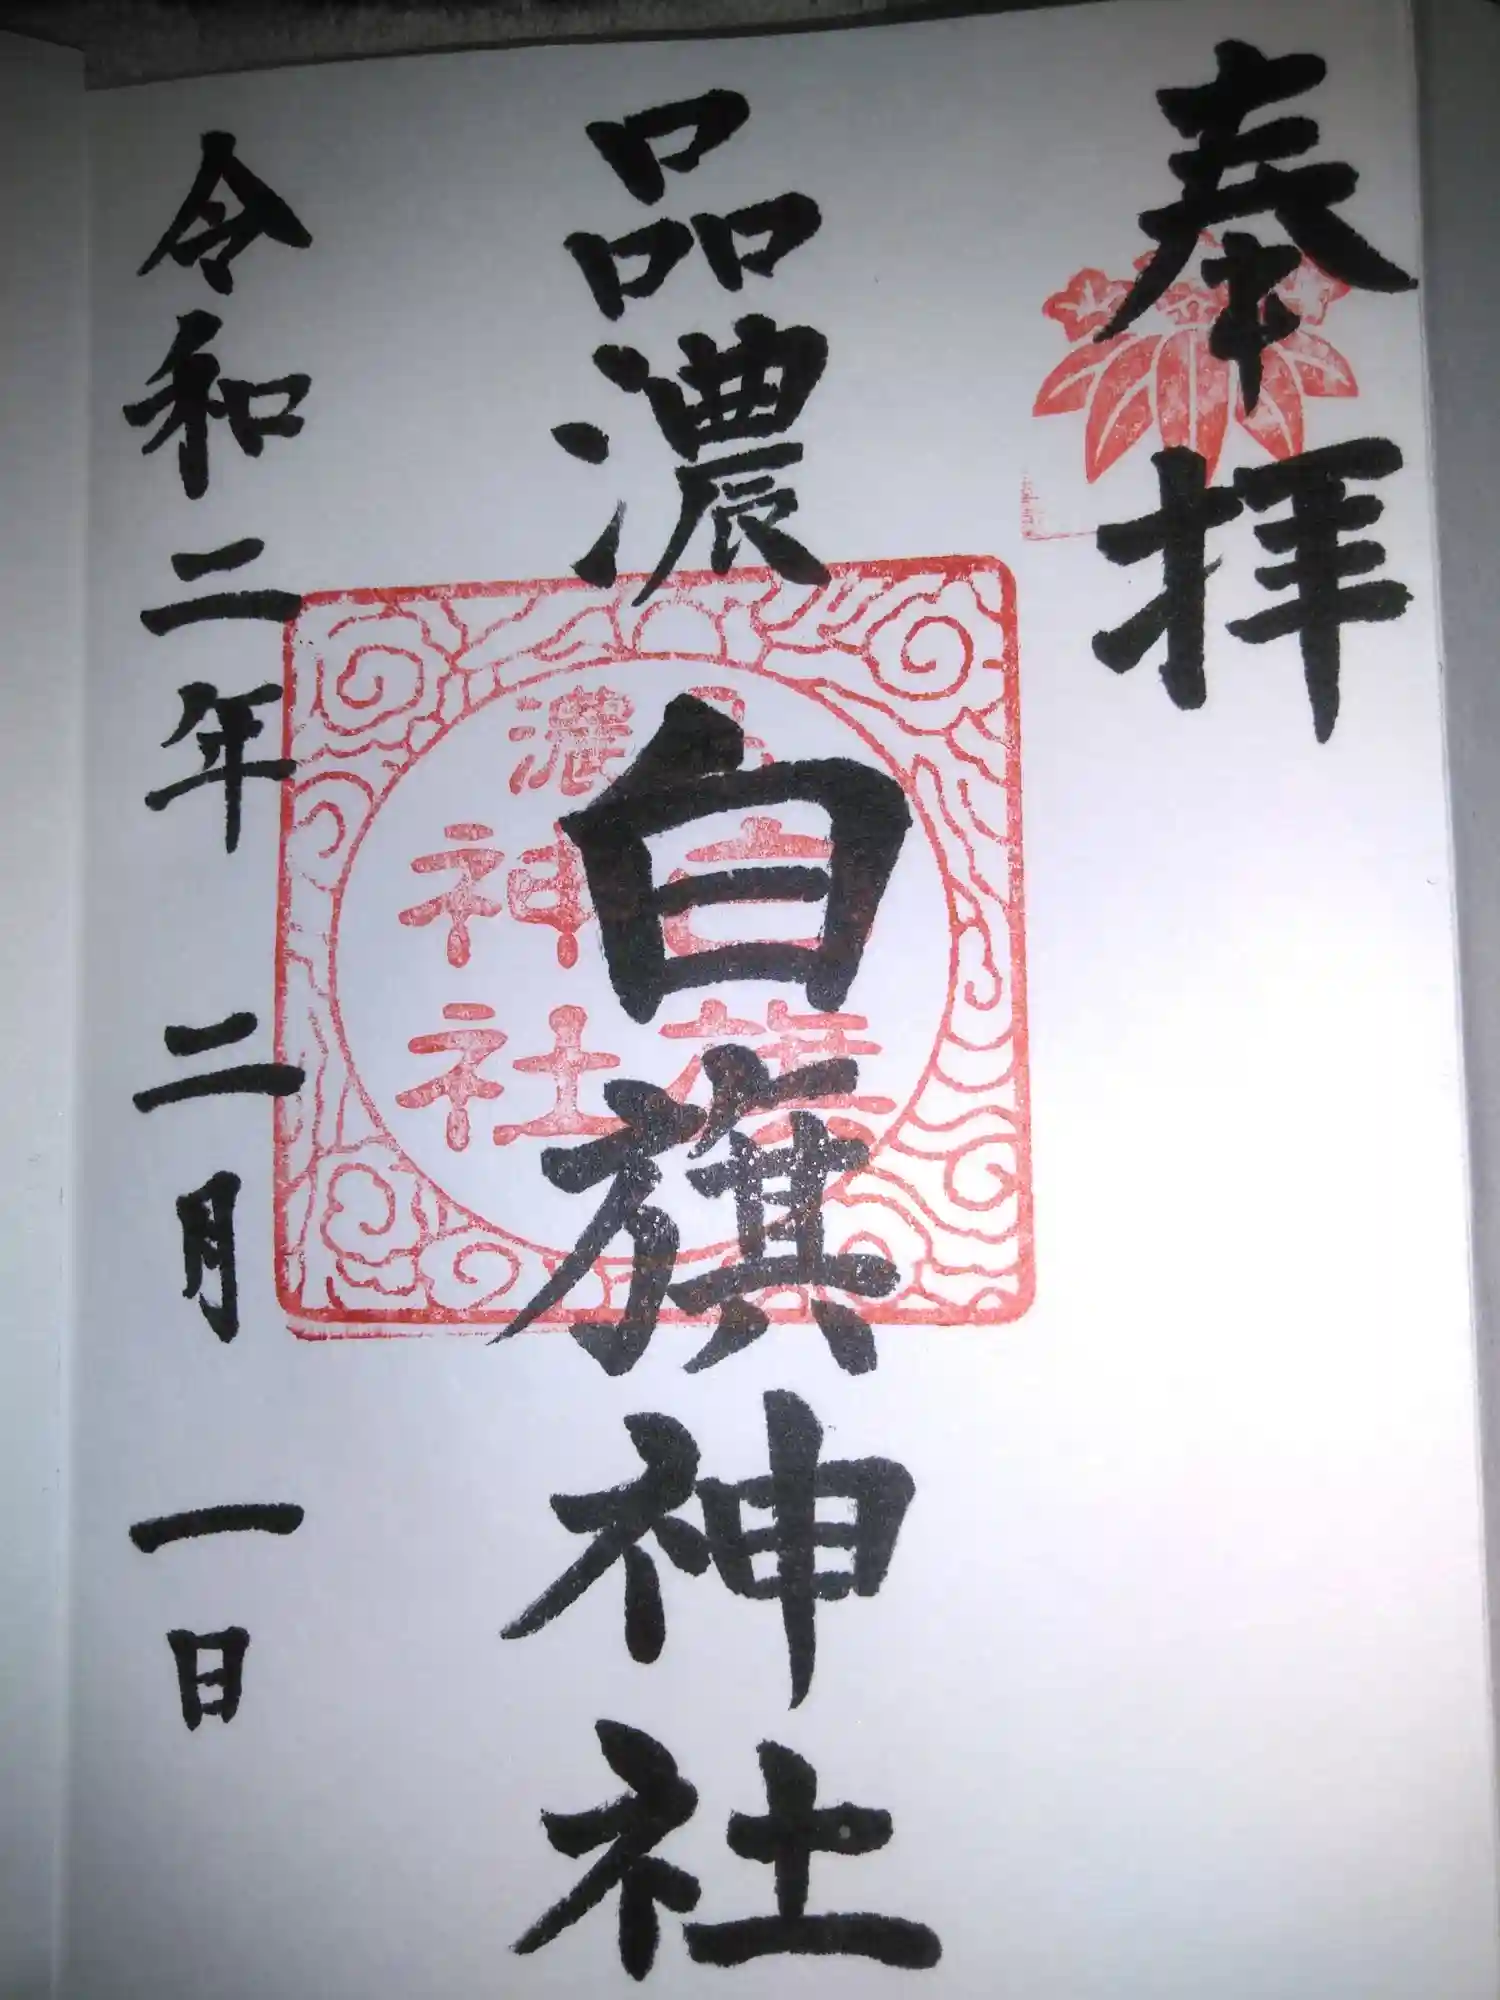 奉拝
品濃
白旗神社
令和二年二月一日
品濃
白旗
神社